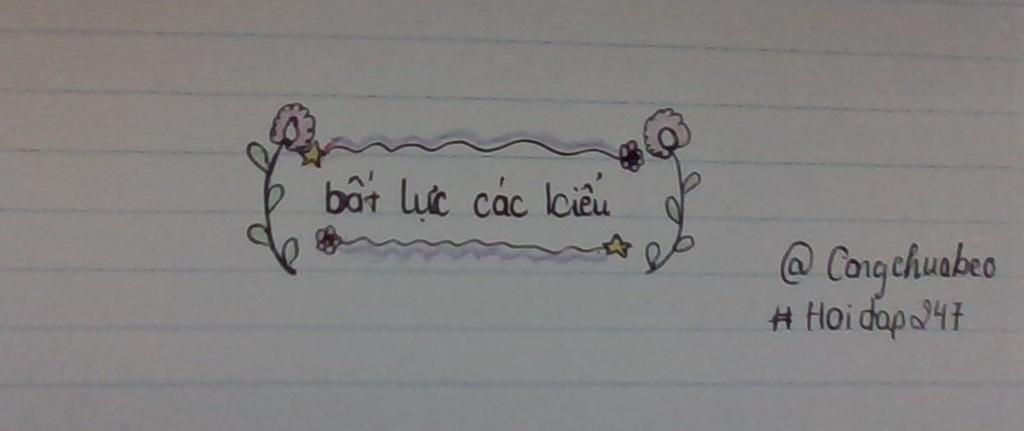 bất lực các kiểu
@ Congchuabeo
# Hoidap247